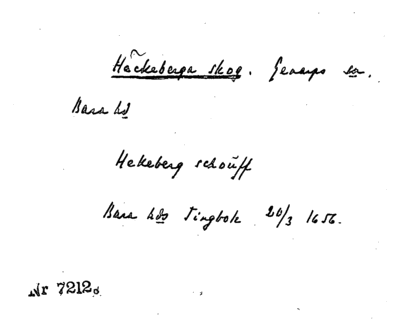 Häckeberga skog. Genarps sn.
Bara hd
Hekeberg schouff
Bara hds Tingbok 20/3 1656.
Nr 7212